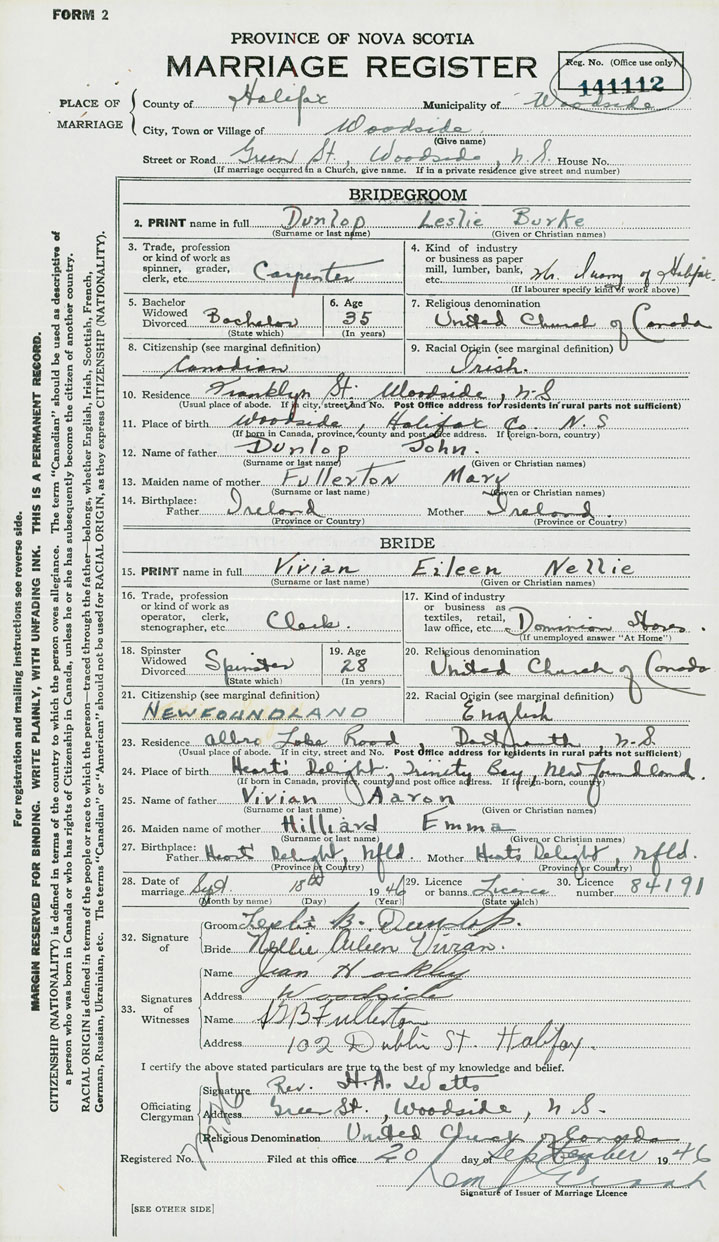 FORM 2
PROVINCE OF NOVA SCOTIA
MARRIAGE REGISTER
Reg. No. (Office use only)
141112
PLACE OF MARRIAGE
County of Halifax Municipality of Woodside
City, Town or Village of Woodside
(Give name)
Street or Road Green St., Woodside, N.S. House No.
(If marriage occurred in a Church, give name. If in a private residence give street and number)
BRIDEGROOM
2. PRINT name in full Dunlop Leslie Burke
(Surname or last name) (Given or Christian names)
3. Trade, profession or kind of work as spinner, grader, clerk, etc. Carpenter
4. Kind of industry or business as paper mill, lumber, bank, etc. of Halifax.
(If labourer specify kind of work above)
5. Bachelor Widowed Divorced Bachelor
(State which)
6. Age 35
(In years)
7. Religious denomination
United Church of Canada
8. Citizenship (see marginal definition)
Canadian
9. Racial Origin (see marginal definition)
Irish.
10. Residence Franklyn St. Woodside, N.S
(Usual place of abode. If in city, street and No. Post Office address for residents in rural parts not sufficient)
11. Place of birth Woodside, Halifax Co. N.S
(If born in Canada, province, county and post office address. If foreign-born, country)
12. Name of father Dunlop John.
(Surname or last name) (Given or Christian names)
13. Maiden name of mother Fullerton Mary
(Surname or last name) (Given or Christian names)
14. Birthplace: Father Ireland Mother Ireland.
(Province or Country) (Province or Country)
BRIDE
15. PRINT name in full Vivian Eileen Nellie
(Surname or last name) (Given or Christian names)
16. Trade, profession or kind of work as operator, clerk, stenographer, etc. Clerk.
17. Kind of industry or business as textiles, retail, law office, etc. Dominion Stores.
(If unemployed answer "At Home")
18. Spinster Widowed Divorced Spinster
(State which)
19. Age 28
(In years)
20. Religious denomination
United Church of Canada
21. Citizenship (see marginal definition)
NEWFOUNDLAND
22. Racial Origin (see marginal definition)
English
23. Residence Albro Lake Road, Dartmouth, N.S
(Usual place of abode. If in city, street and No. Post Office address for residents in rural parts not sufficient)
24. Place of birth Heart's Delight, Trinity Bay, Newfoundland.
(If born in Canada, province, county and post office address. If foreign-born, country)
25. Name of father Vivian Aaron
(Surname or last name) (Given or Christian names)
26. Maiden name of mother Hilliard Emma
(Surname or last name) (Given or Christian names)
27. Birthplace: Father Heart's Delight, Nfld. Mother Heart's Delight, Nfld.
(Province or Country) (Province or Country)
28. Date of marriage Sept. 18th 1946
(Month by name) (Day) (Year)
29. Licence or banns Licence
(State which)
30. Licence number 84191
32. Signature of
Groom Leslie B. Dunlop.
Bride Nellie Eileen Vivian.
33. Signatures of Witnesses
Name Jean Hockley
Address Woodside
Name G B Fullerton
Address 102 Dublin St. Halifax.
I certify the above stated particulars are true to the best of my knowledge and belief.
Officiating Clergyman
Signature Rev. H.A. Watts
Address Green St., Woodside, N.S.
Religious Denomination United Church of Canada
Registered No. Filed at this office 20 day of September 1946
Signature of Issuer of Marriage Licence
[SEE OTHER SIDE]
For registration and mailing instructions see reverse side.
MARGIN RESERVED FOR BINDING. WRITE PLAINLY, WITH UNFADING INK. THIS IS A PERMANENT RECORD.
CITIZENSHIP (NATIONALITY) is defined in terms of the country to which the person owes allegiance. The term "Canadian" should be used as descriptive of
a person who was born in Canada or who has rights of Citizenship in Canada, unless he or she has subsequently become the citizen of another country.
RACIAL ORIGIN is defined in terms of the people or race to which the person—traced through the father—belongs, whether English, Irish, Scottish, French,
German, Russian, Ukrainian, etc. The terms "Canadian" or "American" should not be used for RACIAL ORIGIN, as they express CITIZENSHIP (NATIONALITY).